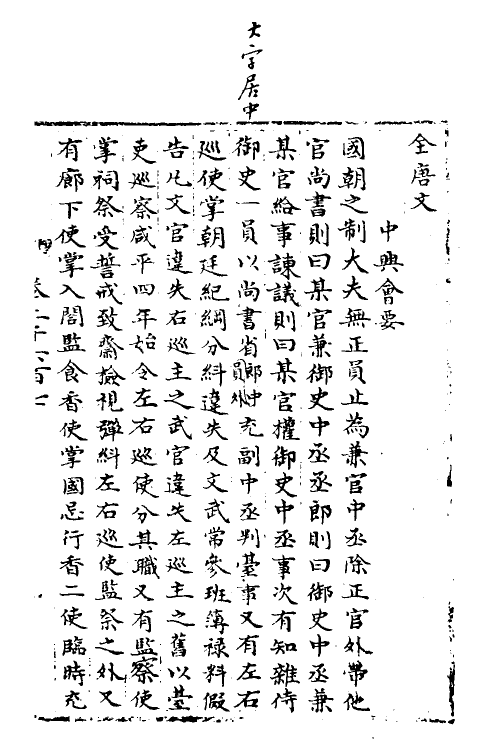 大字居中
全唐文
中興會要
國朝之制大夫無正員止為兼官中丞除正官外帶他
官尚書則曰某官兼御史中丞丞郎則曰御史中丞兼
某官給事諫議則曰某官權御史中丞事次有知雜侍
御史一員以尚書省郎中員外充副中丞判臺事又有左右
巡使掌朝廷紀綱分糾違失及文武常參班簿祿料假
告凡文官違失右巡主之武官違失左巡主之舊以臺
吏巡察咸平四年始令左右巡使分其職又有監察使
掌祠祭受誓戒致齋撿視彈糾左右巡使監祭之外又
有廊下使掌入閤監食香使掌國忌行香二使臨時充
卷二千六百七